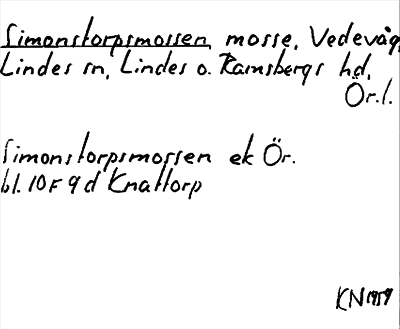 Simonstorpsmossen mosse, Vedevåg,
Lindes sn, Lindes o. Ramsbergs hd,
Ör.l.
Simonstorpsmossen ek Ör.
bl. 10F 9d Knattorp
KN 1959